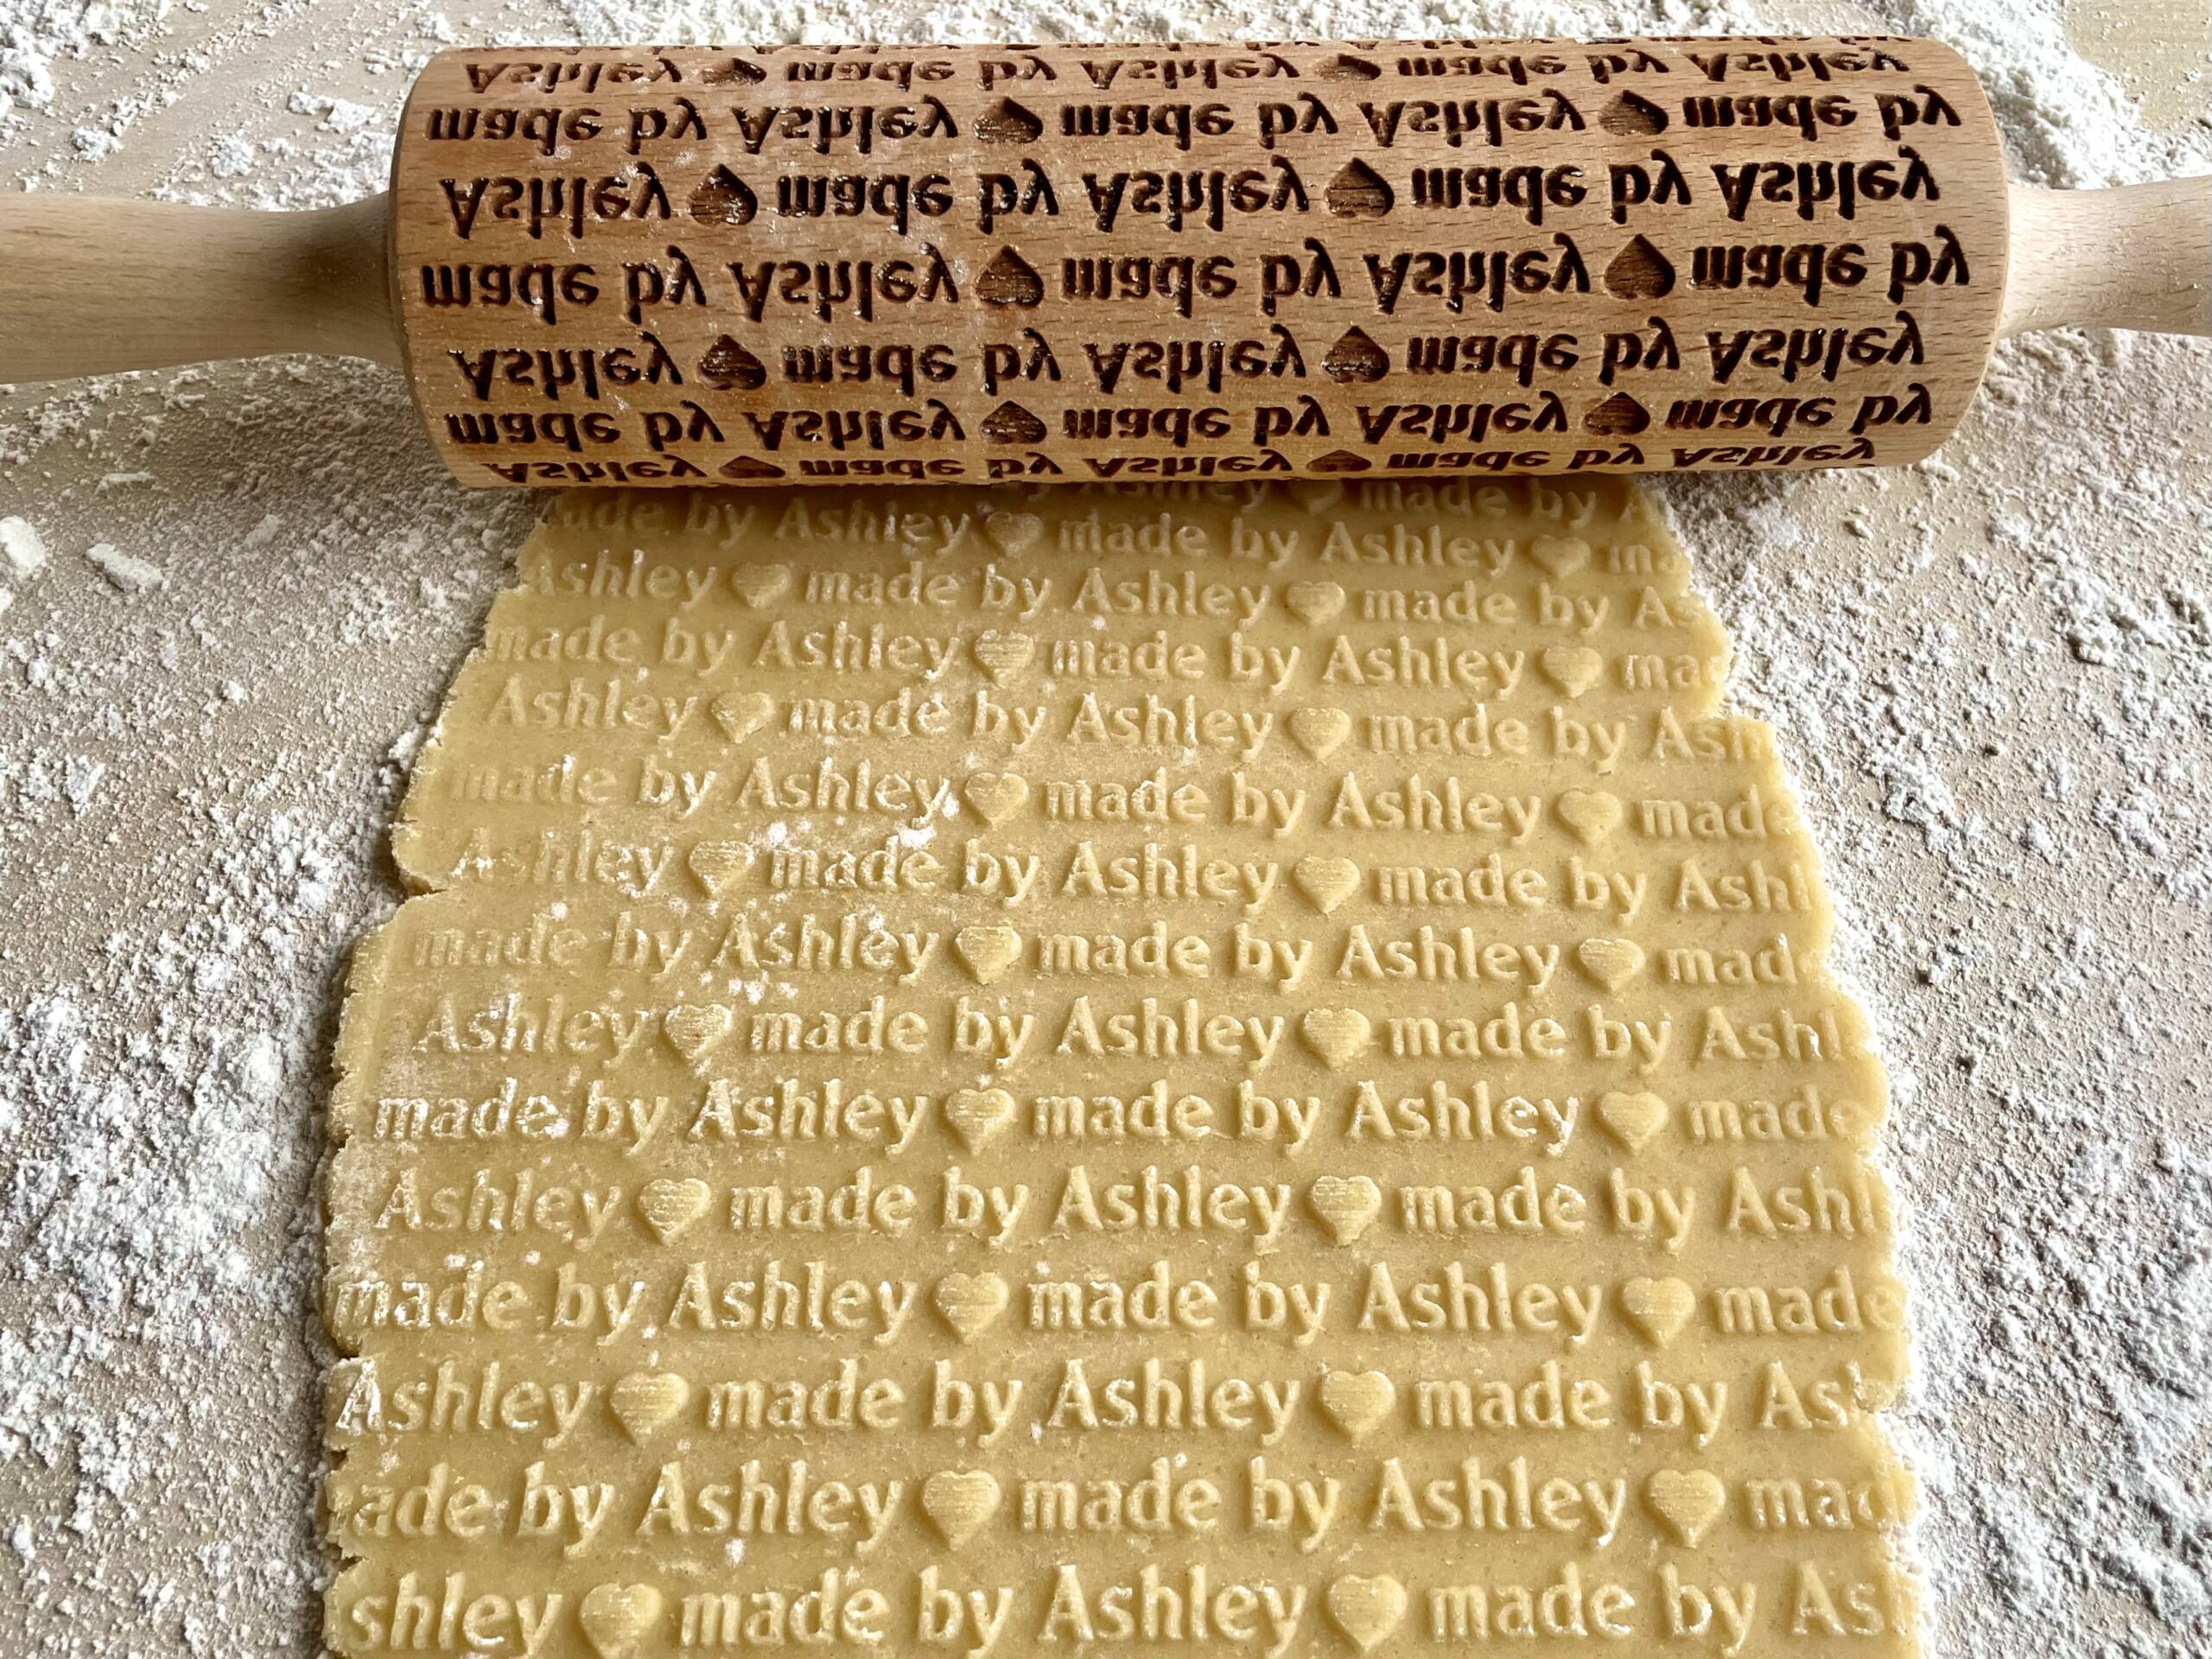 Ashley ♥ made by Ashley ♥ made by Ashley
made by Ashley ♥ made by Ashley ♥ made by
Ashley ♥ made by Ashley ♥ made by Ashley
made by Ashley ♥ made by Ashley ♥ made by
Ashley ♥ made by Ashley ♥ made by Ashley
made by Ashley ♥ made by Ashley ♥ made by
Ashley ♥ made by Ashley ♥ made by Ashley
♥ made by
by Ashley ♥ made by Ashley ♥
Ashley ♥ made by Ashley ♥ made by As
made by Ashley ♥ made by Ashley ♥ ma
Ashley ♥ made by Ashley ♥ made by Ash
made by Ashley ♥ made by Ashley ♥ made
Ashley ♥ made by Ashley ♥ made by Ashl
made by Ashley ♥ made by Ashley ♥ made
Ashley ♥ made by Ashley ♥ made by Ashl
made by Ashley ♥ made by Ashley ♥ made
Ashley ♥ made by Ashley ♥ made by Ashl
made by Ashley ♥ made by Ashley ♥ made
Ashley ♥ made by Ashley ♥ made by Ash
ade by Ashley ♥ made by Ashley ♥ mad
shley ♥ made by Ashley ♥ made by As